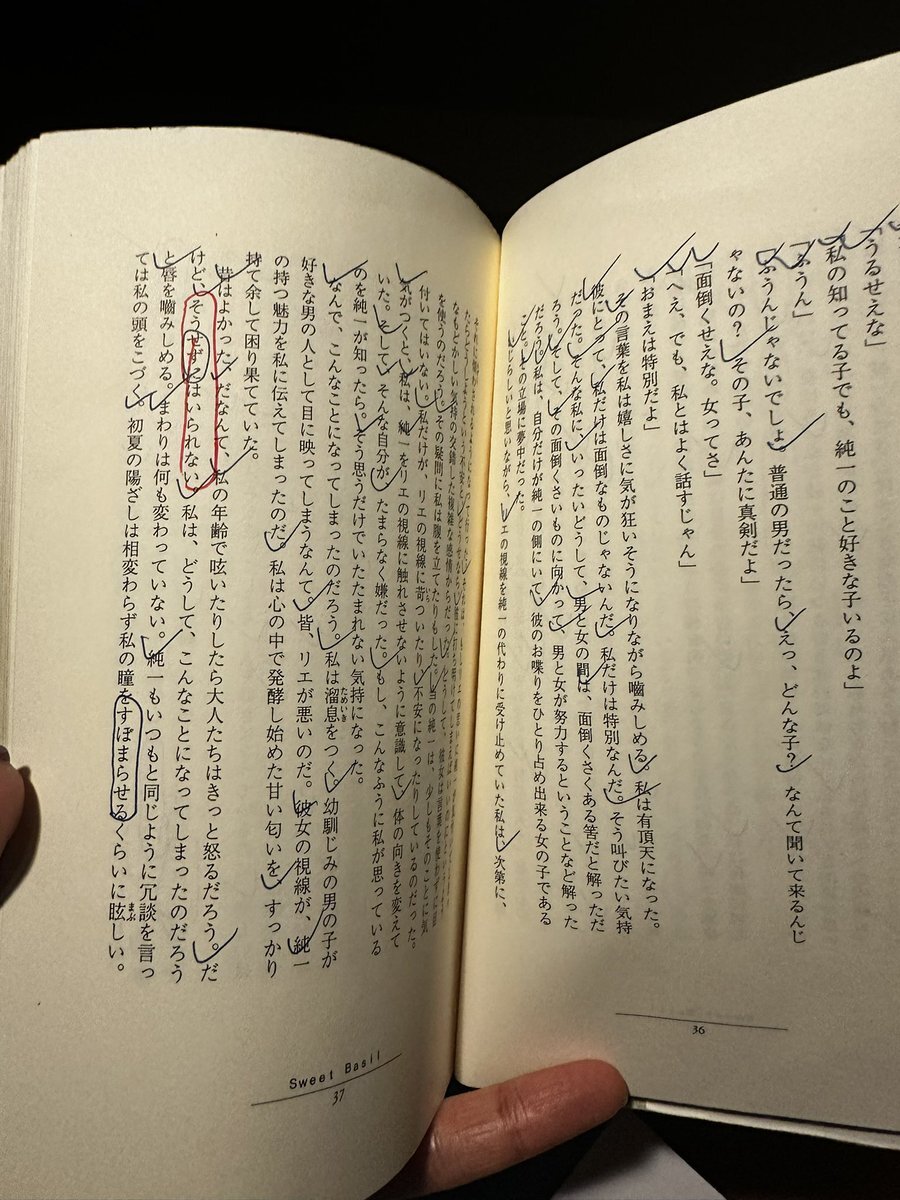 「うるせえな」
私の知ってる子でも、純一のこと好きな子いるのよ」
「ふうん」
「ふうんじゃないでしょ。普通の男だったら、えっ、どんな子? なんて聞いて来るんじ
ゃないの? その子、あんたに真剣だよ」
「面倒くせえな。女ってさ」
「へえ、でも、私とはよく話すじゃん」
「おまえは特別だよ」
その言葉を私は嬉しさに気が狂いそうになりながら噛みしめる。私は有頂天になった。
彼にとって、私だけは面倒なものじゃないんだ。私だけは特別なんだ。そう叫びたい気持
だった。そんな私に、いったいどうして、男と女の間は、面倒くさくある筈だと解っただ
ろう。そして、その面倒くさいものに向かって、男と女が努力するということなど解った
だろう。私は、自分だけが純一の側にいて、彼のお喋りをひとり占め出来る女の子である
こと。その立場に夢中だった。
いじらしいと思いながら、リエの視線を純一の代わりに受け止めていた私は、次第に、
36
を使うのだろう。その疑問に私は腹を立てたりもした。当の純一は、少しもそのことに気
付いてはいない。私だけが、リエの視線に苛ついたり、不安になったりしているのだった。
気がつくと、私は、純一をリエの視線に触れさせないように意識して、体の向きを変えて
いた。そして、そんな自分が、たまらなく嫌だった。もし、こんなふうに私が思っている
のを純一が知ったら。そう思うだけでいたたまれない気持になった。
なんで、こんなことになってしまったのだろう。私は溜息をつく。幼馴じみの男の子が
好きな男の人として目に映ってしまうなんて。皆、リエが悪いのだ。彼女の視線が、純一
の持つ魅力を私に伝えてしまったのだ。私は心の中で発酵し始めた甘い匂いを、すっかり
持て余して困り果てていた。
昔はよかった、だなんて、私の年齢で呟いたりしたら大人たちはきっと怒るだろう。だ
けど、そうせずにはいられない。私は、どうして、こんなことになってしまったのだろう
と唇を噛みしめる。まわりは何も変わっていない。純一もいつもと同じように冗談を言っ
ては私の頭をこづく。初夏の陽ざしは相変わらず私の瞳をすぼまらせるくらいに眩しい。
Sweet Basil
37